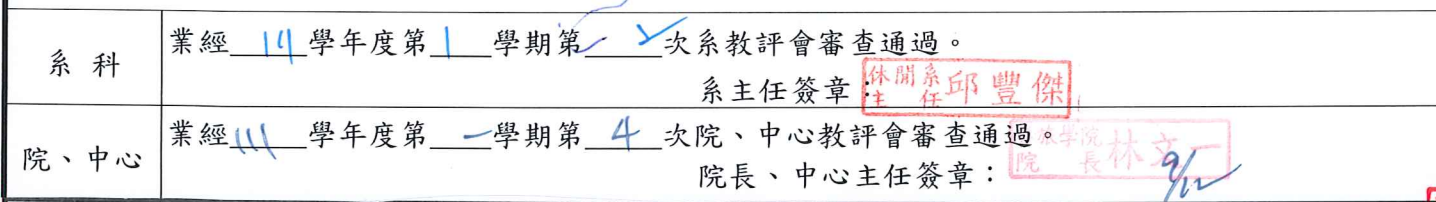 系科
業經 111 學年度第 1 學期第 2 次系教評會審查通過。
系主任簽章：
休閒系主任 邱豐傑
院、中心
業經 111 學年度第 一 學期第 4 次院、中心教評會審查通過。
院長、中心主任簽章：
學院院長 林文一
9/12